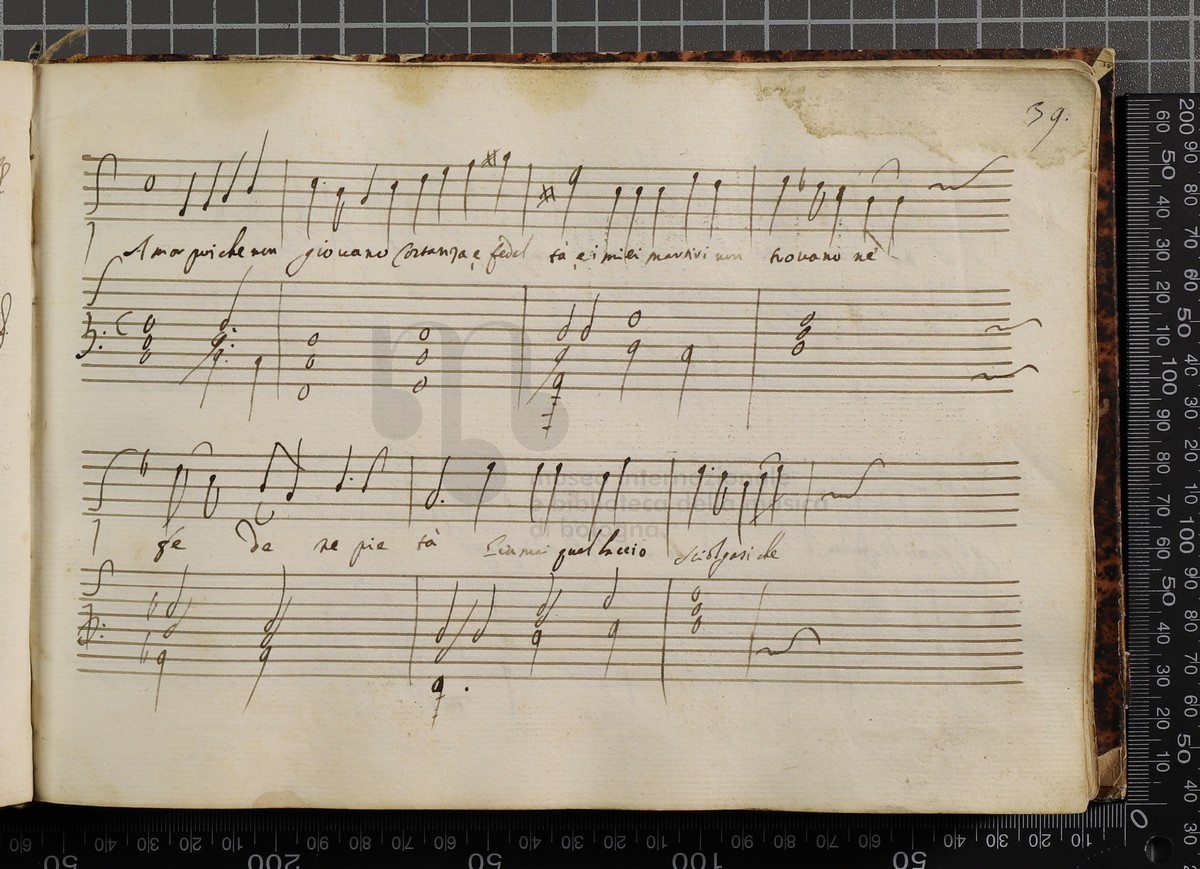 39.
Amor poi che non giovano Costanza, e fedel tà, e i miei martiri non trovano nè
fè de ne pie tà Sia mai quel laccio sciolgasi che
museo internazionale
e biblioteca della musica
di bologna